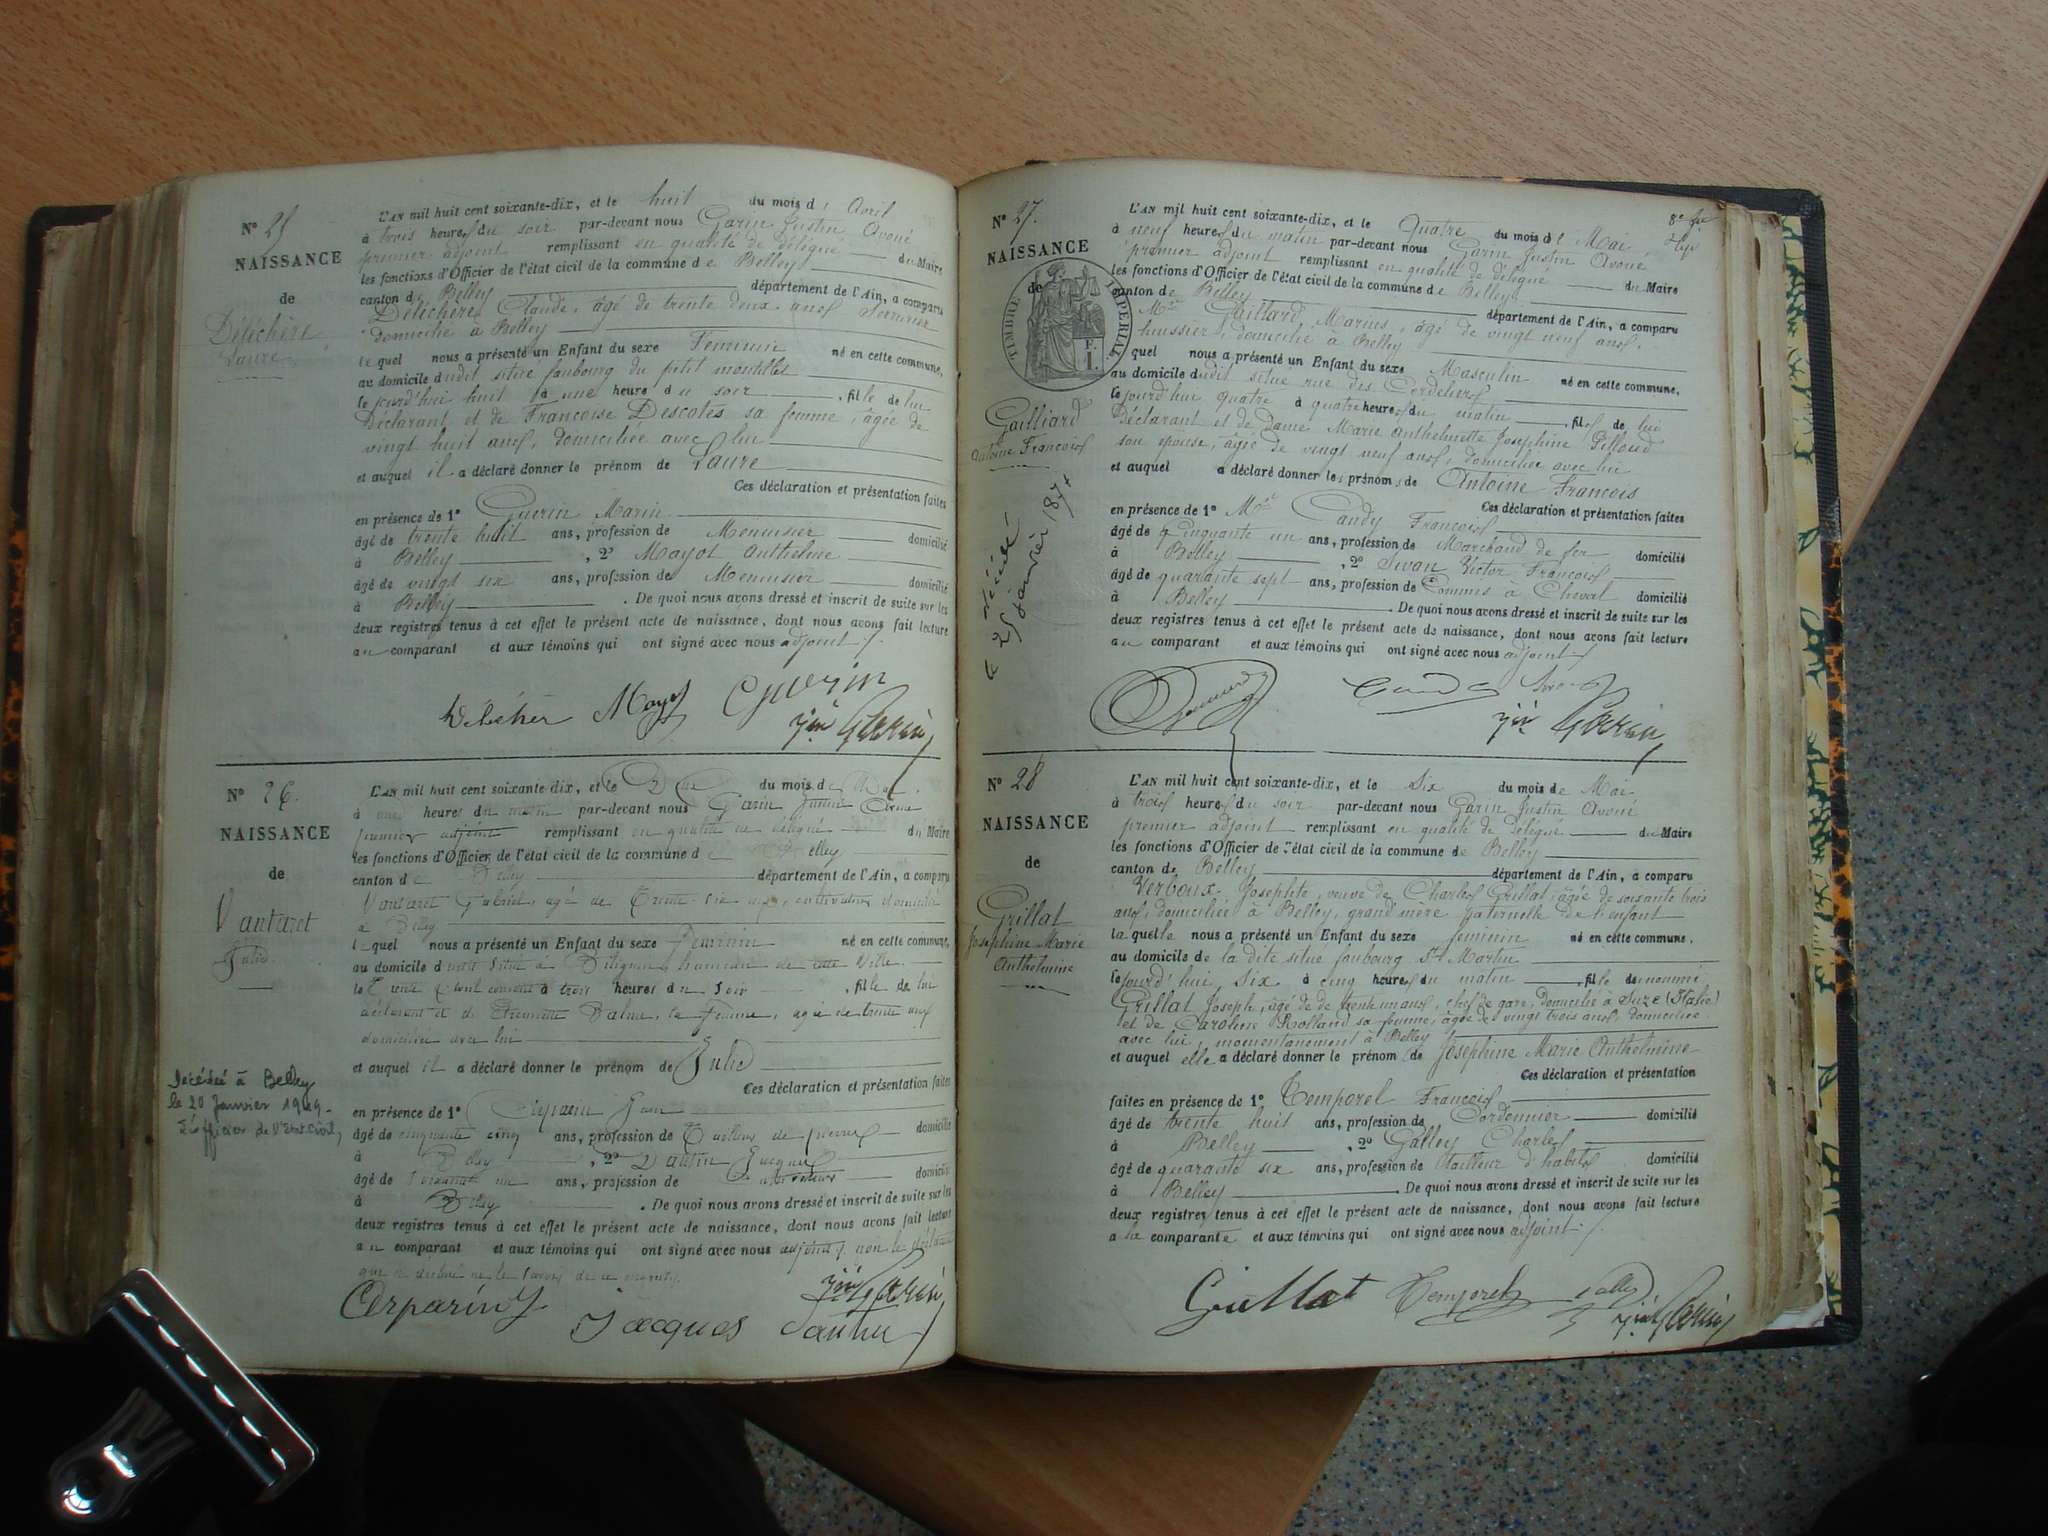 N° 25
NAISSANCE
de
Délichère
Laure
L'AN mil huit cent soixante-dix, et le huit du mois d' Avril
à trois heures du soir par-devant nous Garin Justin Avoué
premier adjoint remplissant en qualité de délégué du Maire
les fonctions d'Officier de l'état civil de la commune de Belley
canton de Belley département de l'Ain, a comparu
Délichère Claude, âgé de trente deux ans Serrurier
domicilié à Belley
lequel nous a présenté un Enfant du sexe Feminin né en cette commune,
au domicile dudit sitüé faubourg du petit
le jourd'hui huit à une heure du soir, fille de lui
Déclarant et de Francoise Descotes sa femme, âgée de
vingt huit ans, domiciliée avec lui
et auquel il a déclaré donner le prénom de Laure
Ces déclaration et présentation faites
en présence de 1° Guerin Marin
âgé de trente huit ans, profession de Menuisier domicilié
à Belley, 2° Mayot Anthelme
âgé de vingt six ans, profession de Menuisier domicilié
à Belley. De quoi nous avons dressé et inscrit de suite sur les
deux registres tenus à cet effet le présent acte de naissance, dont nous avons fait lecture
au comparant et aux témoins qui ont signé avec nous adjoint
Mayot Guerin
Garin
N° 26.
NAISSANCE
de
Vantaret
Julie
Decédée à Belley
le 20 Janvier 1949.
L'officier de l'Etat Civil,
L'AN mil huit cent soixante-dix, et le du mois de
à heures du matin par-devant nous Garin Justin Avoué
premier adjoint remplissant en qualité de délégué du Maire
les fonctions d'Officier de l'état civil de la commune de Belley
canton de Belley département de l'Ain, a comparu
Vantaret Gabriel, agé de Trente six ans, cultivateur domicilié
à Belley
lequel nous a présenté un Enfant du sexe Feminin né en cette commune,
au domicile dudit Situé à hameau de cette Ville
le à trois heures du Soir, fille de lui
déclarant et de sa Femme, agée de trente
domiciliée avec lui
et auquel il a déclaré donner le prénom de Julie
Ces déclaration et présentation faites
en présence de 1° Jean
âgé de cinquante cinq ans, profession de Tailleur de pierres domicilié
à Belley, 2° Jacques
âgé de soixante un ans, profession de Cultivateur domicilié
à Belley. De quoi nous avons dressé et inscrit de suite sur les
deux registres tenus à cet effet le présent acte de naissance, dont nous avons fait lecture
au comparant et aux témoins qui ont signé avec nous adjoint, non le déclarant
Garin
Jacques
8e
N° 27.
NAISSANCE
de
TIMBRE IMPÉRIAL
Gailliard
Antoine Francois
Décédé
le 25 Janvier 187
L'AN mil huit cent soixante-dix, et le Quatre du mois de Mai
à neuf heures du matin par-devant nous Garin Justin Avoué
premier adjoint remplissant en qualité de délégué du Maire
les fonctions d'Officier de l'état civil de la commune de Belley
canton de Belley département de l'Ain, a comparu
Gaillard Marius, âgé de vingt neuf ans,
huissier, domicilié à Belley
quel nous a présenté un Enfant du sexe Masculin né en cette commune,
au domicile dudit situé rue des Cordeliers
le jourd'hui quatre à quatre heures du matin, fils de lui
Déclarant et de Dame Marie Anthelmette Josephine Gilloud
son epouse, âgée de vingt neuf ans, domiciliée avec lui
et auquel a déclaré donner les prénoms de Antoine Francois
Ces déclaration et présentation faites
en présence de 1° Candy Francois
âgé de Cinquante un ans, profession de Marchand de fer domicilié
à Belley, 2° Sivan Victor Francois
âgé de quarante sept ans, profession de Commis à Cheval domicilié
à Belley. De quoi nous avons dressé et inscrit de suite sur les
deux registres tenus à cet effet le présent acte de naissance, dont nous avons fait lecture
au comparant et aux témoins qui ont signé avec nous adjoint
Garin
N° 28
NAISSANCE
de
Grillat
Josephine Marie
Anthelmine
L'AN mil huit cent soixante-dix, et le Six du mois de Mai
à trois heures du soir par-devant nous Garin Justin Avoué
premier adjoint remplissant en qualité de délégué du Maire
les fonctions d'Officier de l'état civil de la commune de Belley
canton de Belley département de l'Ain, a comparu
Verboux Josephte, veuve de Charles Grillat, âgée de soixante trois
ans, domiciliée à Belley, grand'mère paternelle de l'enfant
laquelle nous a présenté un Enfant du sexe feminin né en cette commune,
au domicile de la dite situé faubourg St Martin
le jourd'hui Six à cinq heures du matin, fille de nommé
Grillat Joseph, âgé de de trente un ans, chef de gare, domicilié à Suze (Italie)
et de Caroline Rolland sa femme, âgée de vingt trois ans, domiciliée
avec lui, momentanement à Belley
et auquel elle a déclaré donner le prénom de Josephine Marie Anthelmine
Ces déclaration et présentation
faites en présence de 1° Temporel Francois
âgé de trente huit ans, profession de Cordonnier domicilié
à Belley, 2° Galley Charles
âgé de quarante six ans, profession de tailleur d'habits domicilié
à Belley. De quoi nous avons dressé et inscrit de suite sur les
deux registres tenus à cet effet le présent acte de naissance, dont nous avons fait lecture
a la comparante et aux témoins qui ont signé avec nous adjoint
Grillat Temporel Galley Garin